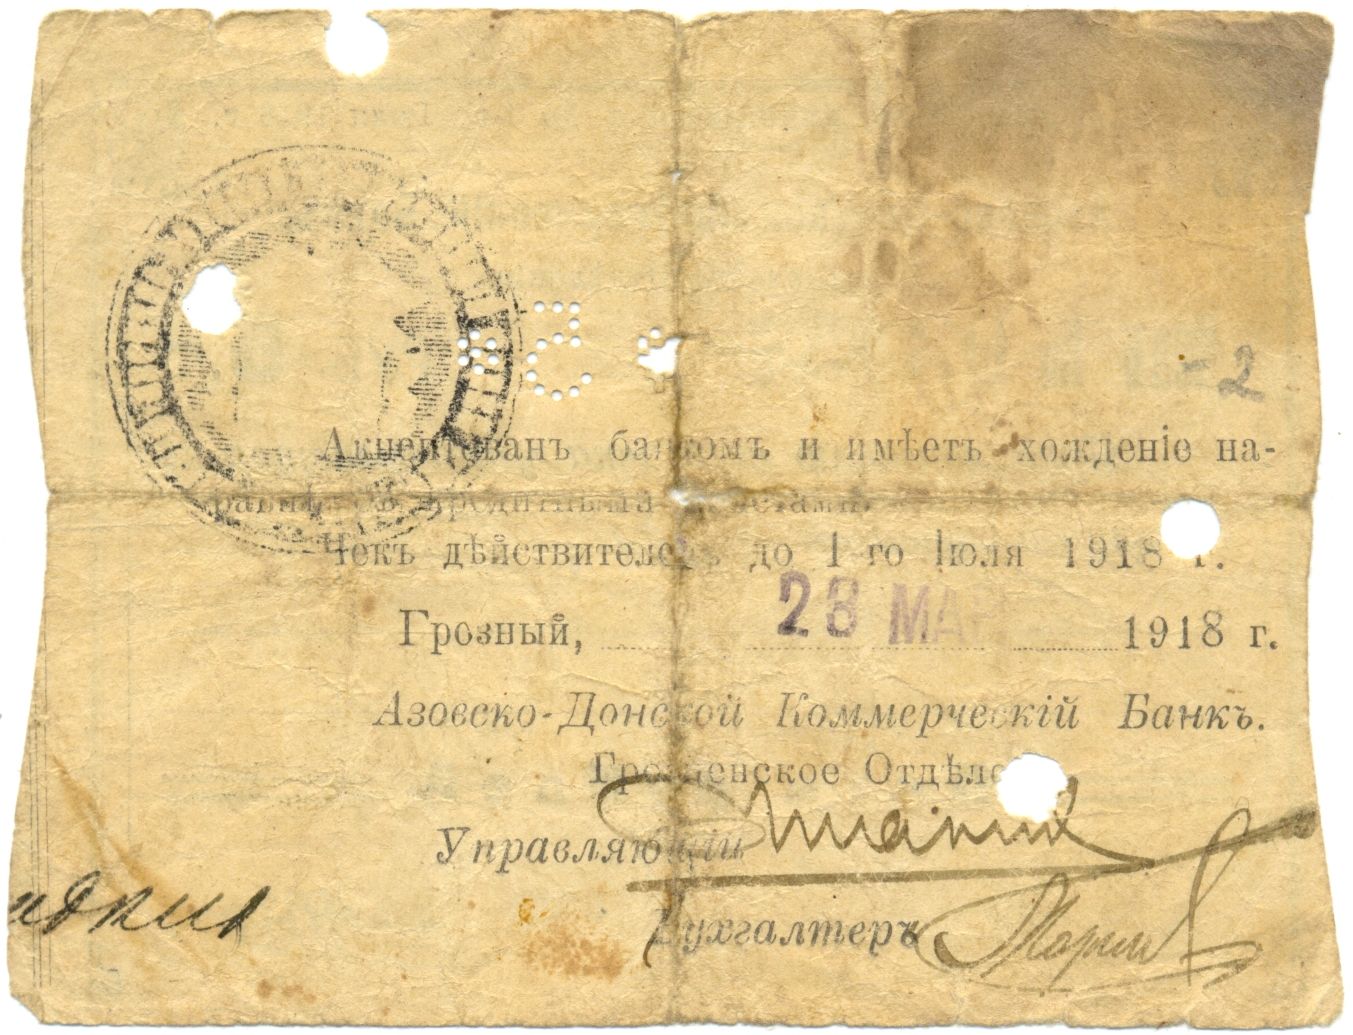 -2
Акцептованъ банкомъ и имѣетъ хожденіе на-
равнѣ съ кредитными билетами.
Чекъ дѣйствителенъ до 1-го Іюля 1918 г.
Грозный, 28 МА 1918 г.
Азовско-Донской Коммерческій Банкъ.
Грозненское Отдѣле
Управляющій
Бухгалтеръ